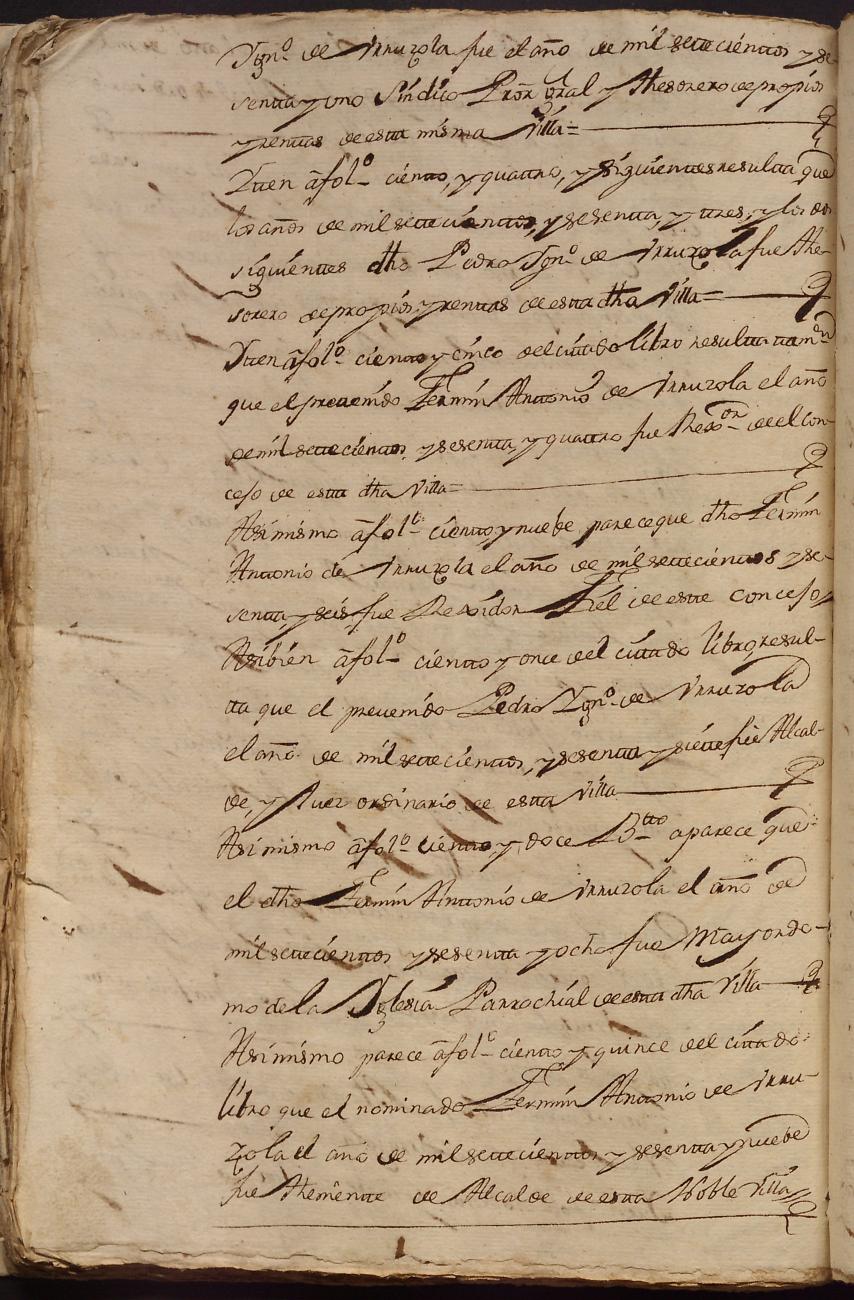 Ygn.º de Urruzola fue el año de mil setecientos y se-
senta y uno Síndico Pror Gral y thesorero de propios
y rentas de esta misma Villa=
Yten â fol.º ciento, y quattro, y siguientes resulta que
los años de mil settecientos, y sesenta, y tres, y los dos
siguientes dho Pedro Ygn.º de Urruzola fue the-
sorero de propios y rentas de esta dha Villa=
Yten â fol.º ciento y cinco del cittado libro resulta tamvn
que el prevenido Fermín Antonio de Urruzola el año
de mil settecientos, y sesenta, y quattro fue Rexor de el con-
cejo de esta dha Villa=
Asimismo â fol.º ciento y nuebe parece que dho Fermín
Antonio de Urruzola el año de mil settecientos y se-
senta, y seis fue Rexidor Fiel de este concejo
Asibien â fol.º ciento y once del cittado libro, resul-
ta que el prevenido Pedro Ygn.º de Urruzola
el año de mil settecientos, y sesenta y siette fue Alcal-
de, y Juez ordinario de esta Villa
Asimismo â fol.º ciento, y doce Btto aparece que
el dho Fermín Antonio de Urruzola el año de
mil settecientos y sesenta y ocho fue Mayordo-
mo de la Yglesia Parrochial de esta dha Villa
Asimismo parece â fol.º ciento y quince del cittado
libro que el nominado Fermín Antonio de Urru-
zola el año de mil settecientos y sesenta y nuebe
fue theniente de Alcalde de esta Noble Villa